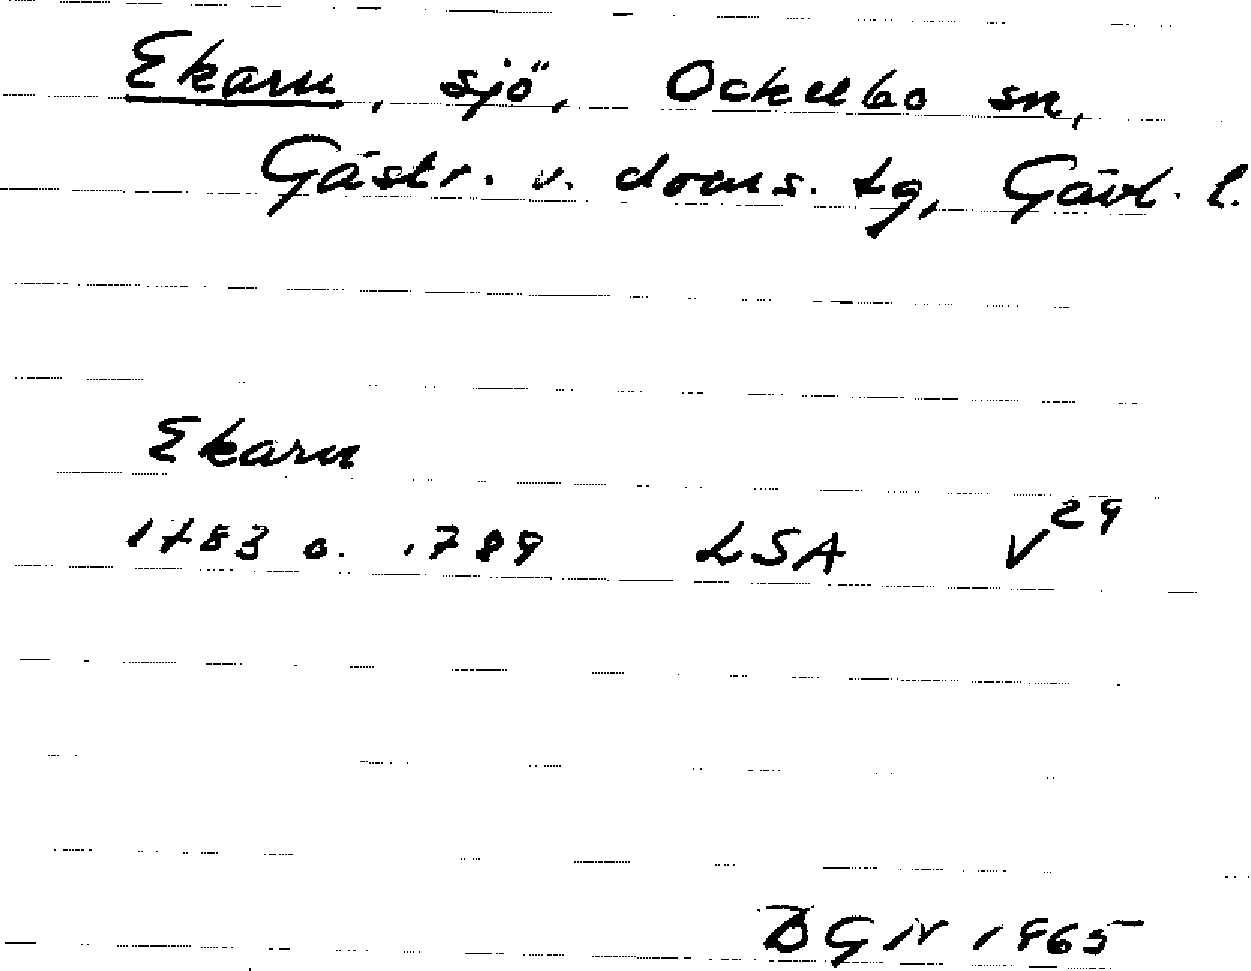 Ekaren, sjö, Ockelbo sn,
Gästr. v. doms. tg, Gävl. l.
Ekaren
1783 o. 1789 LSA V29
DGN 1965